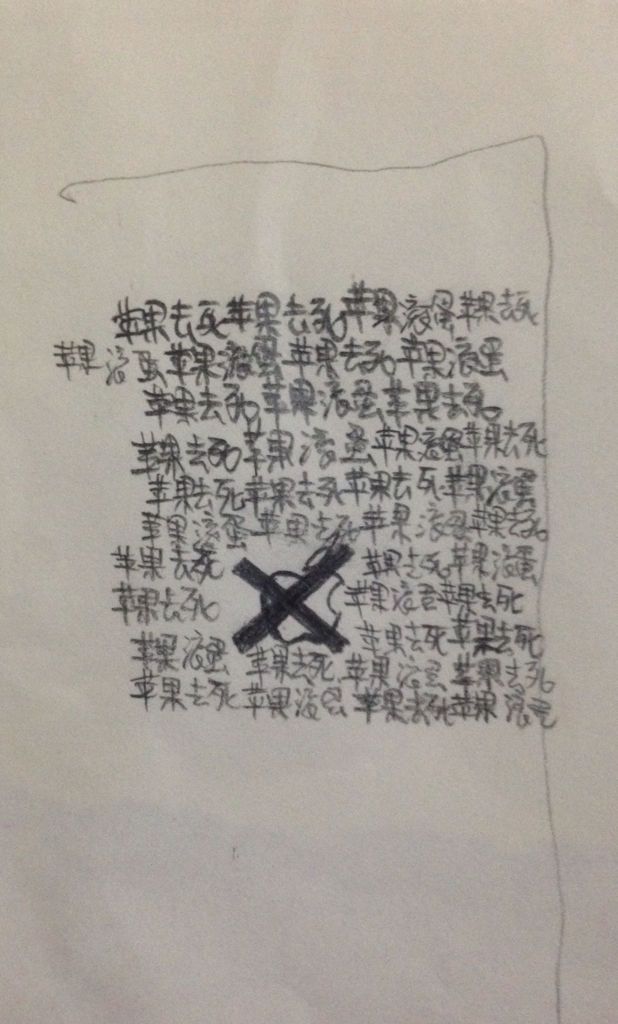 苹果去死苹果去死苹果滚蛋苹果去死
苹果滚蛋苹果滚蛋苹果去死苹果滚蛋
苹果去死苹果滚蛋苹果去死
苹果去死苹果滚蛋苹果滚蛋苹果去死
苹果去死苹果去死苹果去死苹果滚蛋
苹果滚蛋苹果去死苹果滚蛋苹果去死
苹果去死 苹果去死苹果滚蛋
苹果去死 苹果滚蛋苹果去死
苹果去死苹果去死
苹果滚蛋苹果去死苹果滚蛋苹果去死
苹果去死苹果滚蛋苹果去死苹果滚蛋